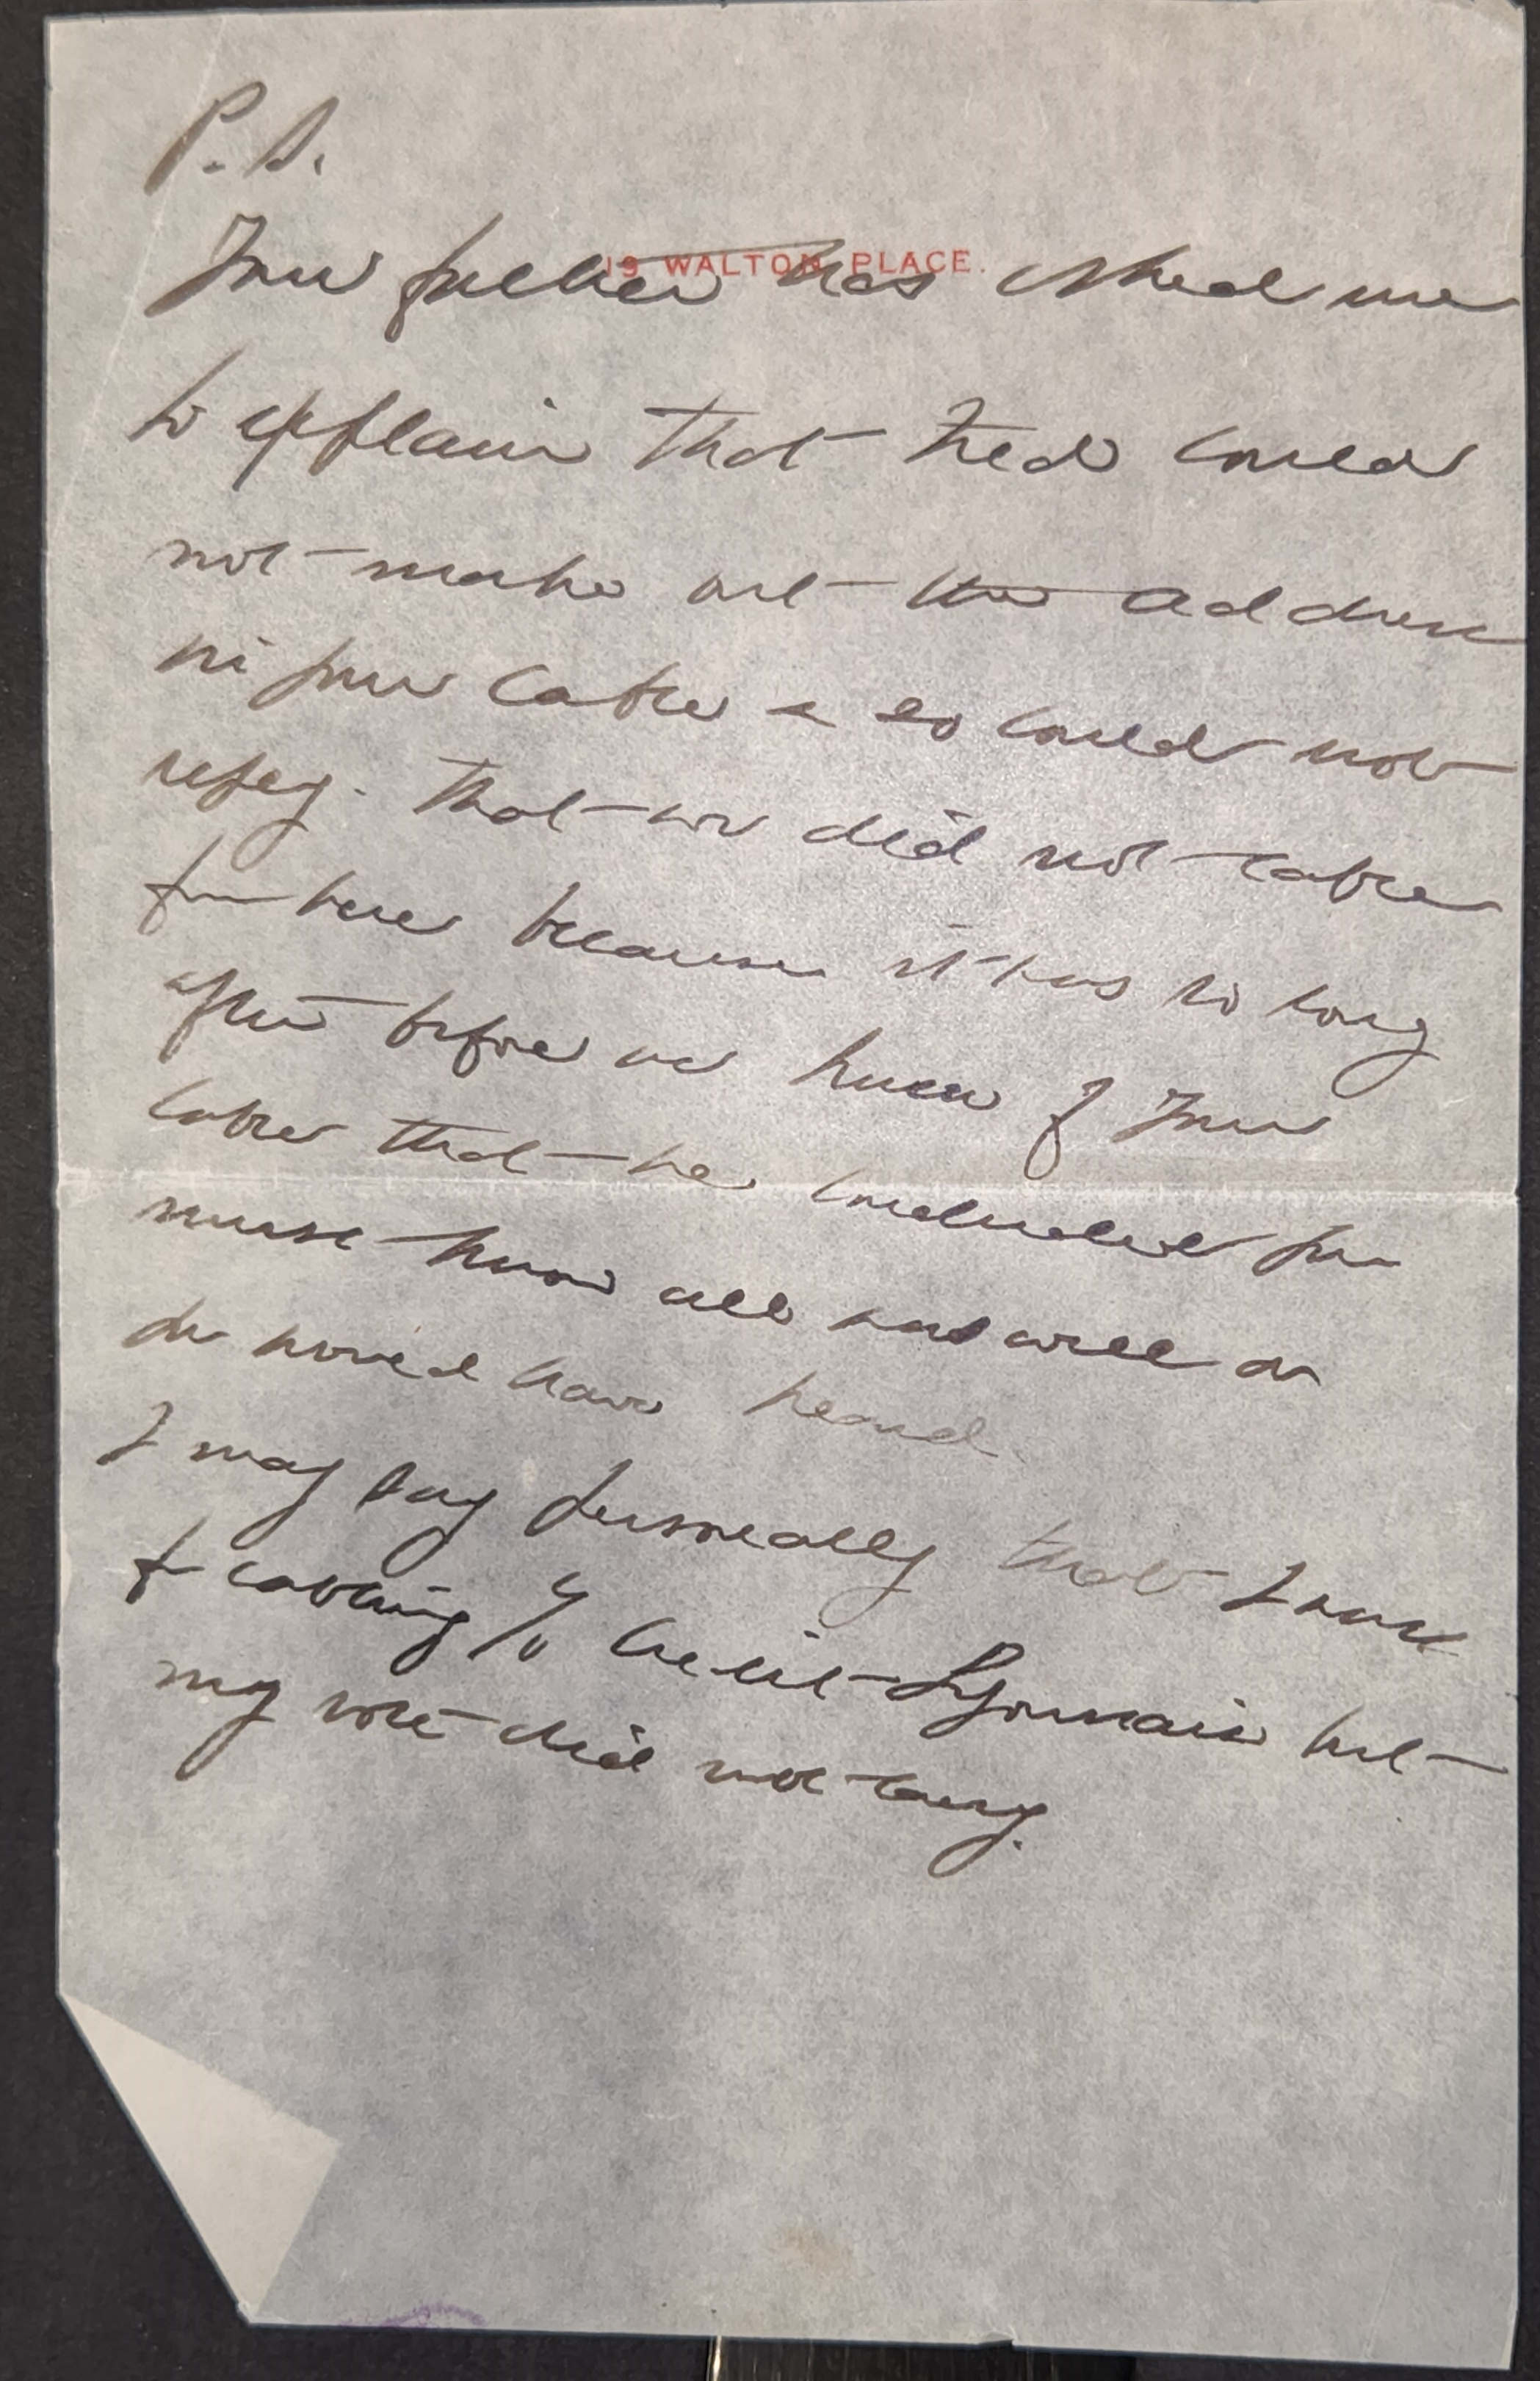 P.S.
19 WALTON PLACE.
Your father has asked me
to explain that Fred could
not make out the address
in your cable & so could not
reply. That we did not cable
from here because it was so long
after before we knew of your
cable that he concluded you
must know all was well or
you would have heard
I may say personally that I was
for cabling c/o Credit Lyonnais but
my vote did not carry.